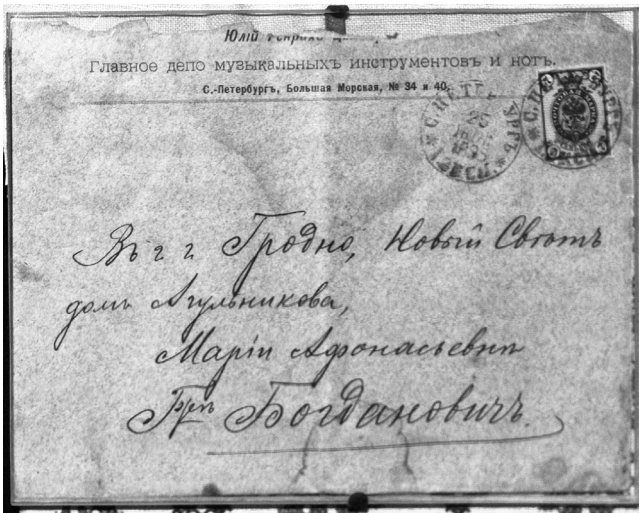 Юлій Генрихъ
Главное депо музыкальныхъ инструментовъ и нотъ.
С.-Петербургъ, Большая Морская, № 34 и 40.
С.ПЕТЕР БУРГЪ
Въ г. г. Гродно, Новый Свѣтъ
домъ Агульникова,
Маріи Афонасьевнѣ
Богдановичъ.